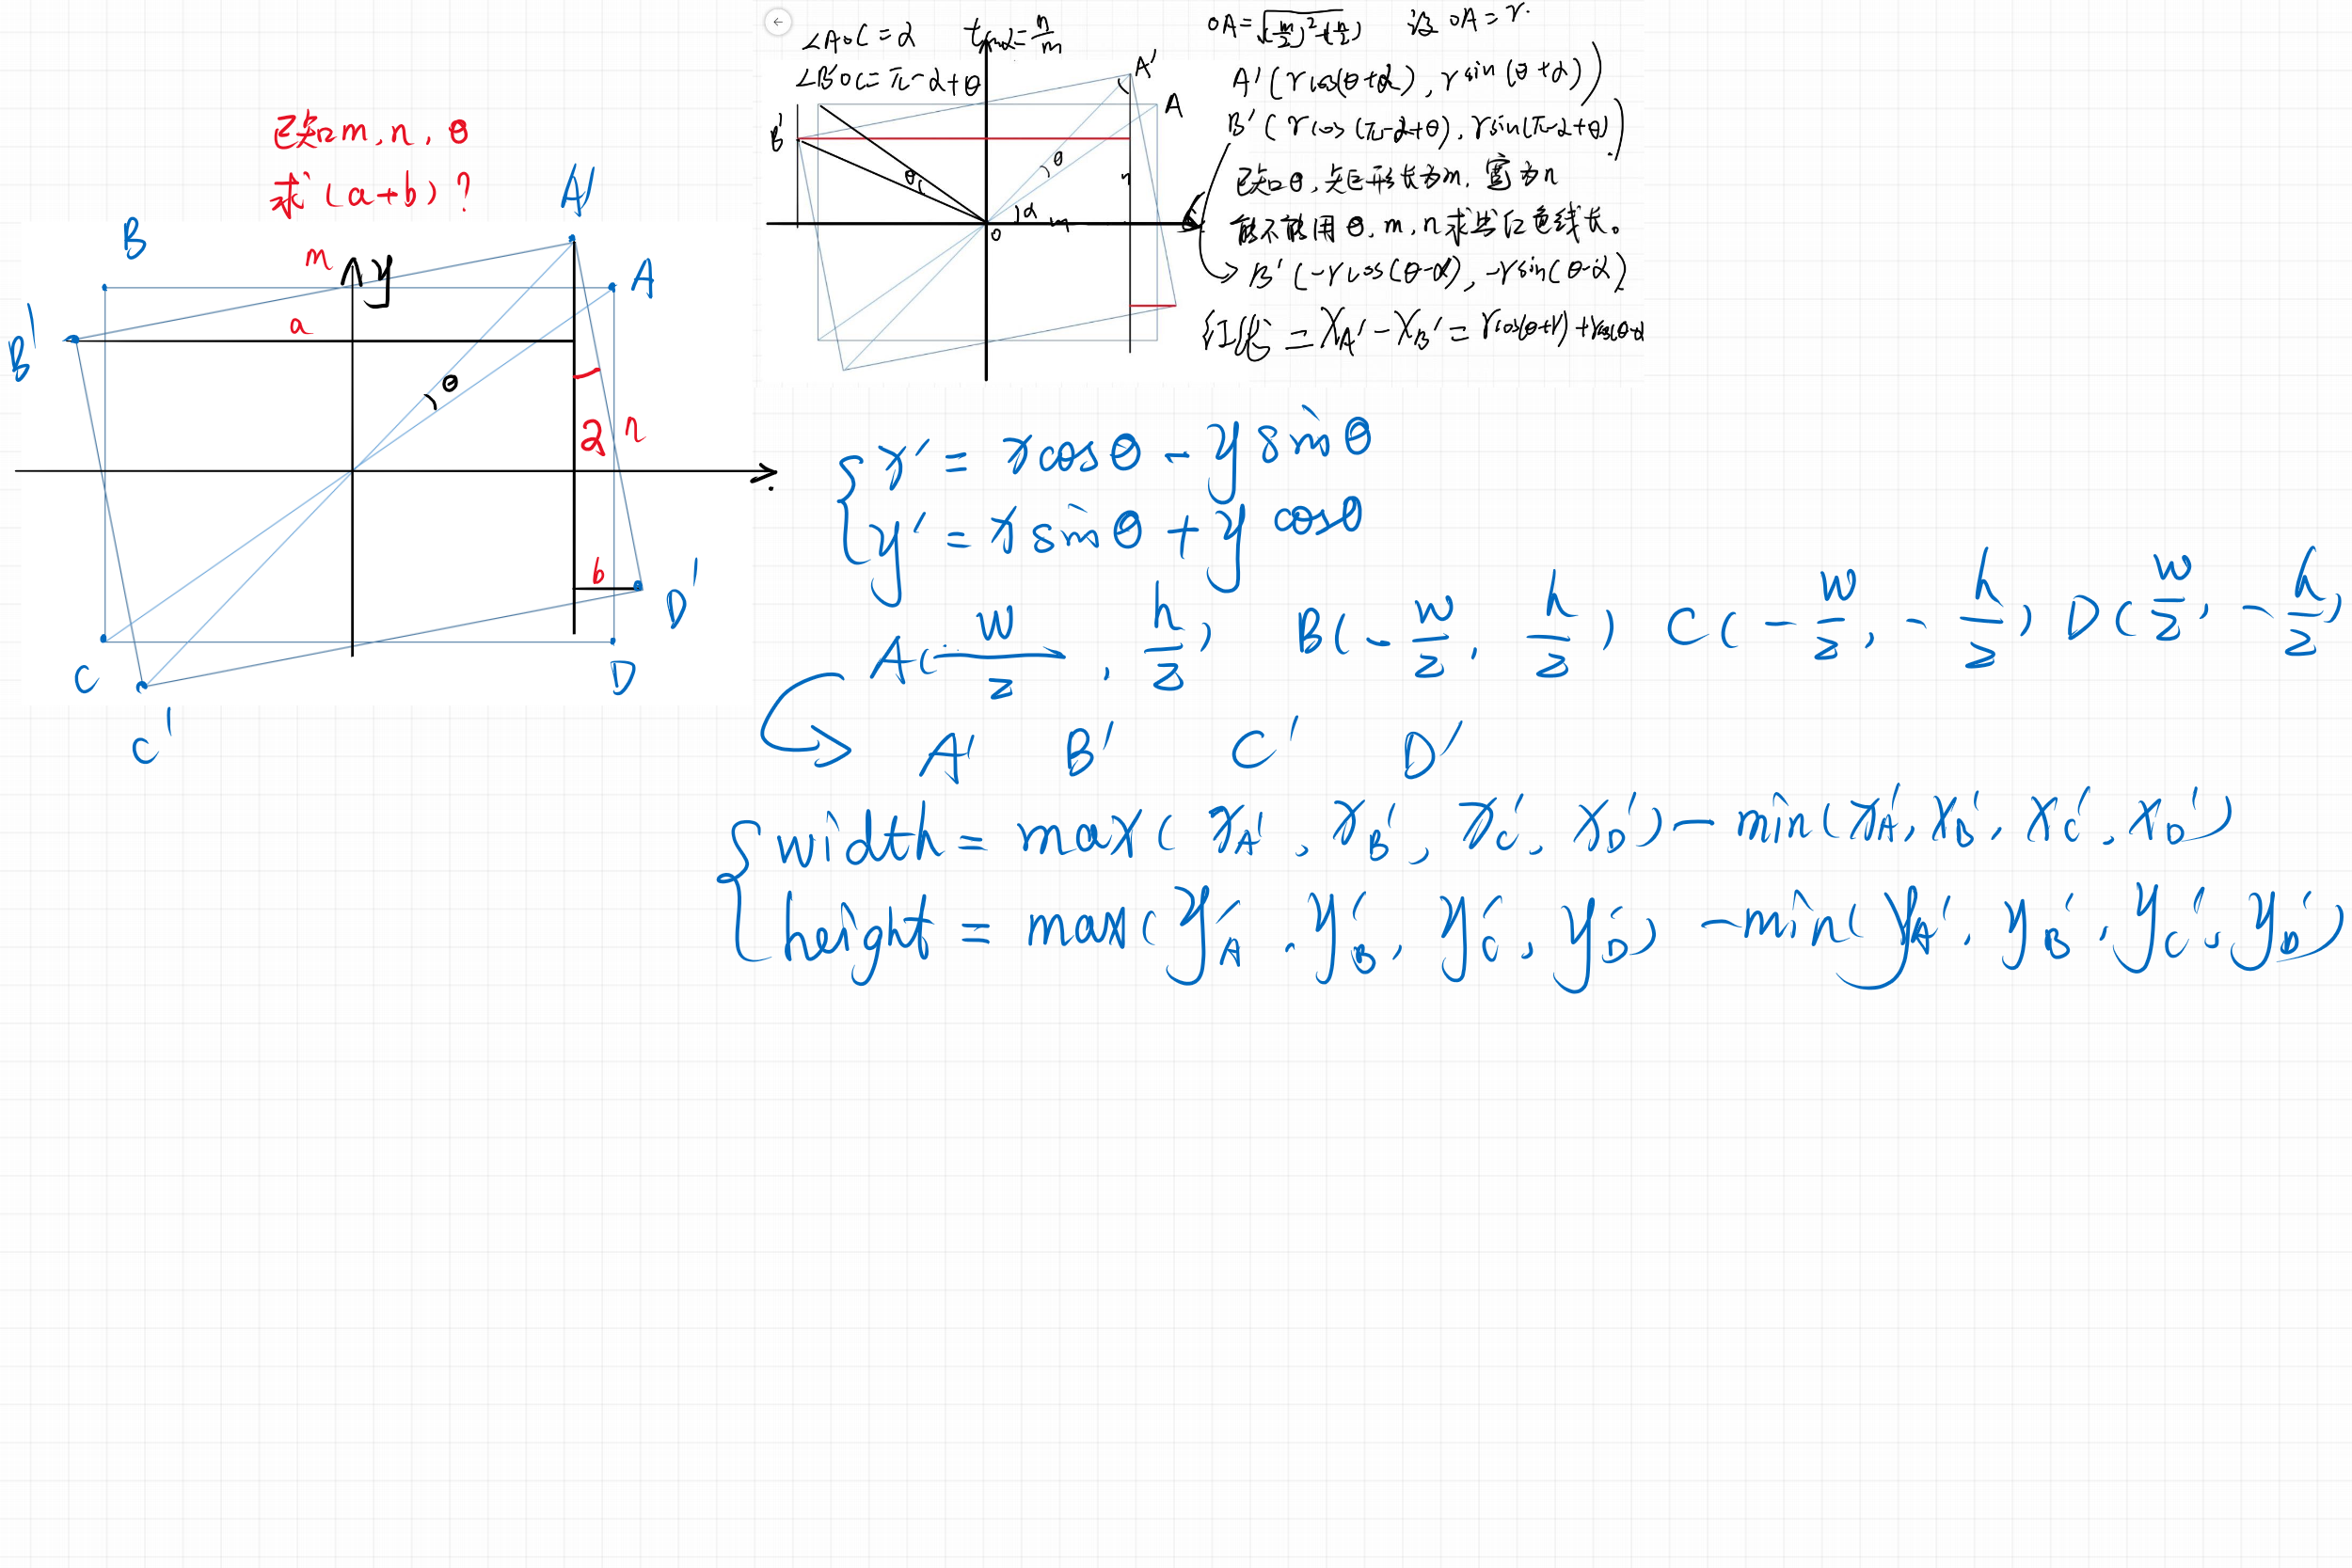 已知m,n,θ
求(a+b)?
B
m
y
A'
A
B'
a
θ
2
n
b
D'
C
D
C'
∠AOC=α tanα=n/m
∠B'OC=π-α+θ
A'
A
B'
θ
θ
n
α
m
o
OA=√(m/2)²+(n/2) 设OA=r.
A'(rcos(θ+α), rsin(θ+α))
B'(rcos(π-α+θ), rsin(π-α+θ))
已知θ,矩形长为m,宽为n
能不能用θ,m,n求出红色线长。
B'(-rcos(θ-α), -rsin(θ-α)
红线=XA'-XB'=rcos(θ+r)+rcos(θ-α
x'=xcosθ-ysinθ
y'=xsinθ+ycosθ
A(w/2, h/2) B(-w/2, h/2) C(-w/2, -h/2) D(w/2, -h/2)
A' B' C' D'
width=max(xA', xB', xC', xD')-min(xA', xB', xC', xD')
height=max(yA', yB', yC', yD')-min(yA', yB', yC', yD')